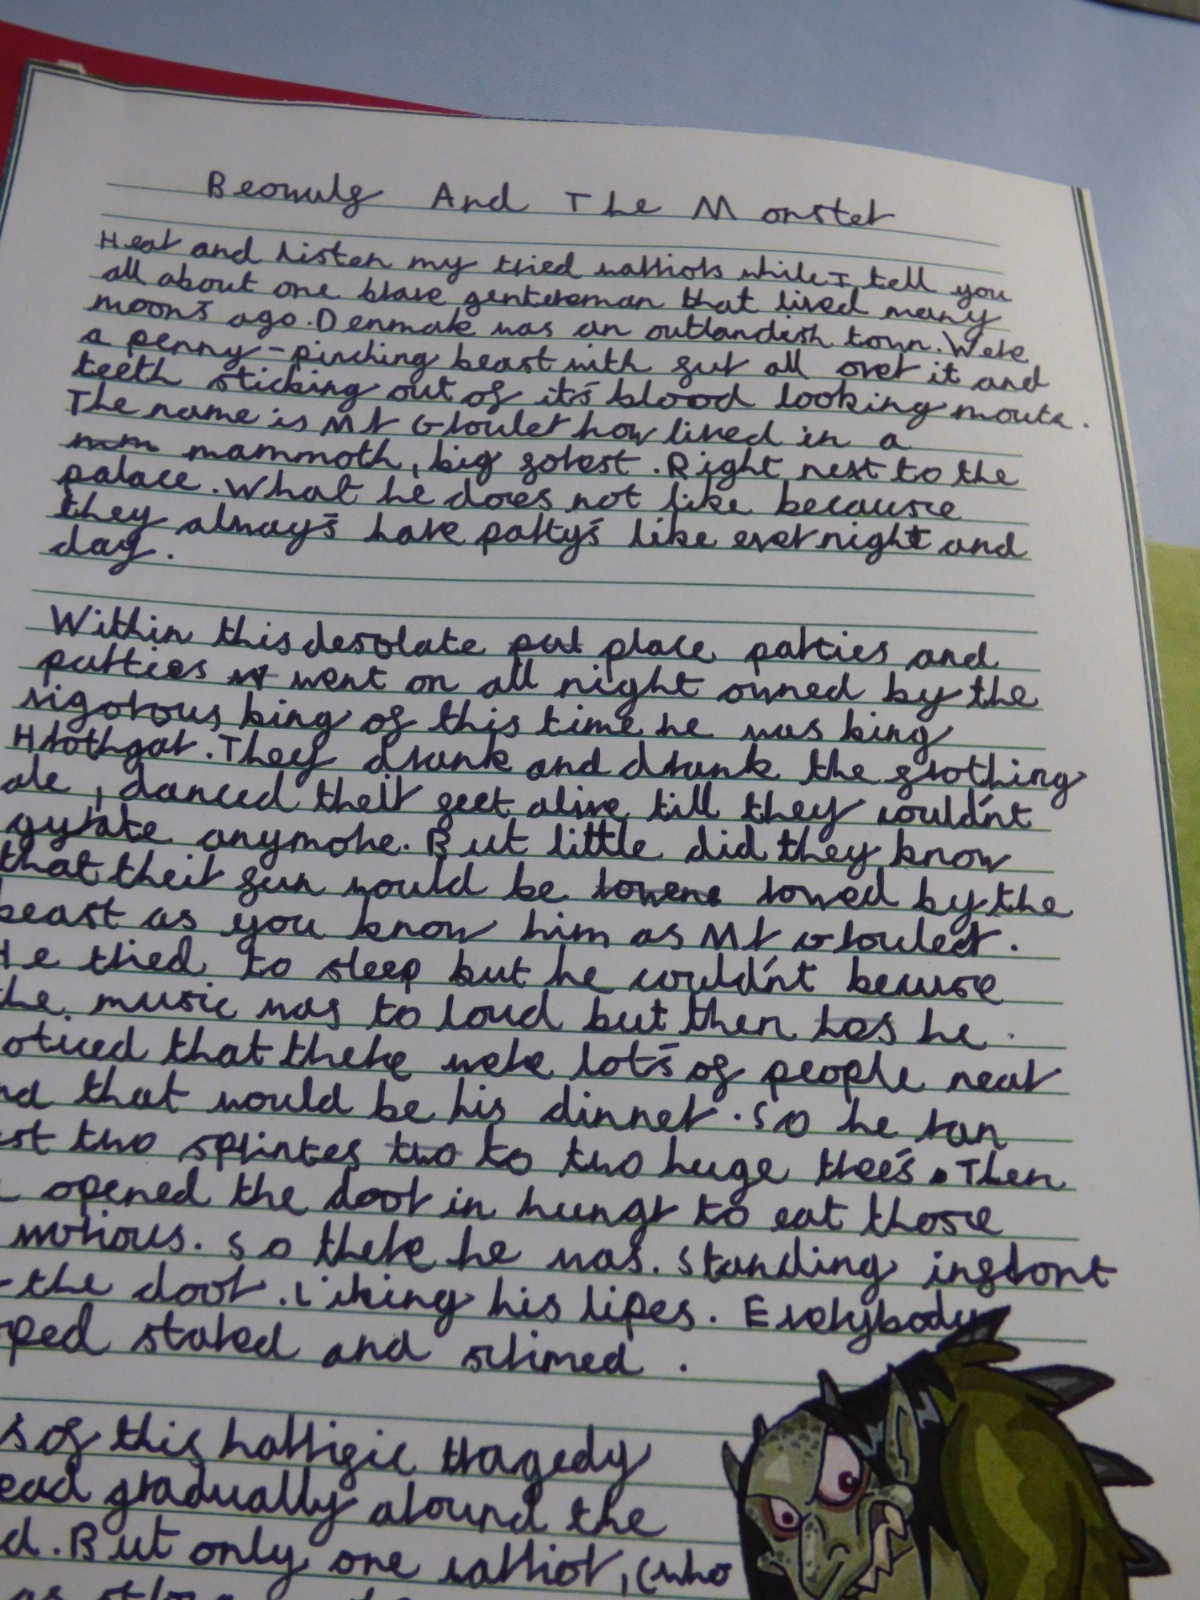 Beowulf And The Monster
Hear and listen my tried warriors while I tell you
all about one brave gentereman that lived many
moon's ago. Denmak was an outlandish town. Were
a penny-pinching beast with fur all over it and
teeth sticking out of it's blood looking mouth.
The name is Mr Growler how lived in a
mammoth, big forest. Right next to the
palace. What he does not like because
they alway's have party's like ever night and
day.
Within this desolate place parties and
parties went on all night owned by the
rigorous king of this time he was king
Hrothgar. They drank and drank the frothing
ale, danced their feet alive till they could'nt
gyrate anymore. But little did they know
that their fun would be rowed by the
beast as you know him as Mr Grouler.
He tried to sleep but he could'nt becurse
the music was to loud but then he
oticed that there were lot's of people near
nd that would be his dinner. So he ran
st two sprintes to two huge tree's. Then
opened the door in hungr to eat those
. So there he was. Standing infront
the door. Liking his lipes. Everybody
ped stared and srimed.
s of this harrific tragedy
ead gradually around the
d. But only one warrior, (who
as